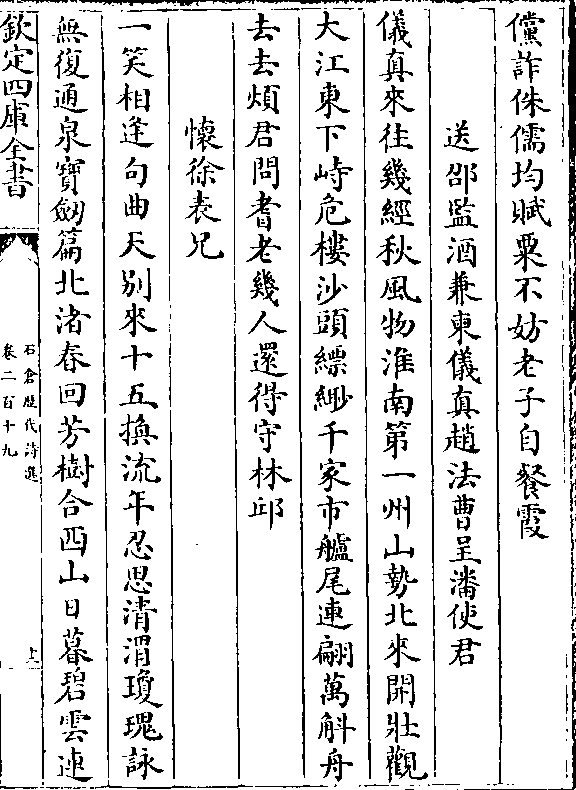 儻詐侏儒均賦粟不妨老子自餐霞
送邵監酒兼柬儀真趙法曹呈潘使君
儀真來往幾經秋風物淮南第一州山勢北來開壯觀
大江東下峙危樓沙頭縹緲千家市艫尾連翩萬斛舟
去去煩君問耆老幾人還得守林邱
懷徐表兄
一笑相逢句曲天别來十五換流年忍思清渭瓊瑰詠
無復通泉寶劒篇北渚春回芳樹合西山日暮碧雲連
欽定四庫全書
石倉歷代詩選
卷二百十九
十二